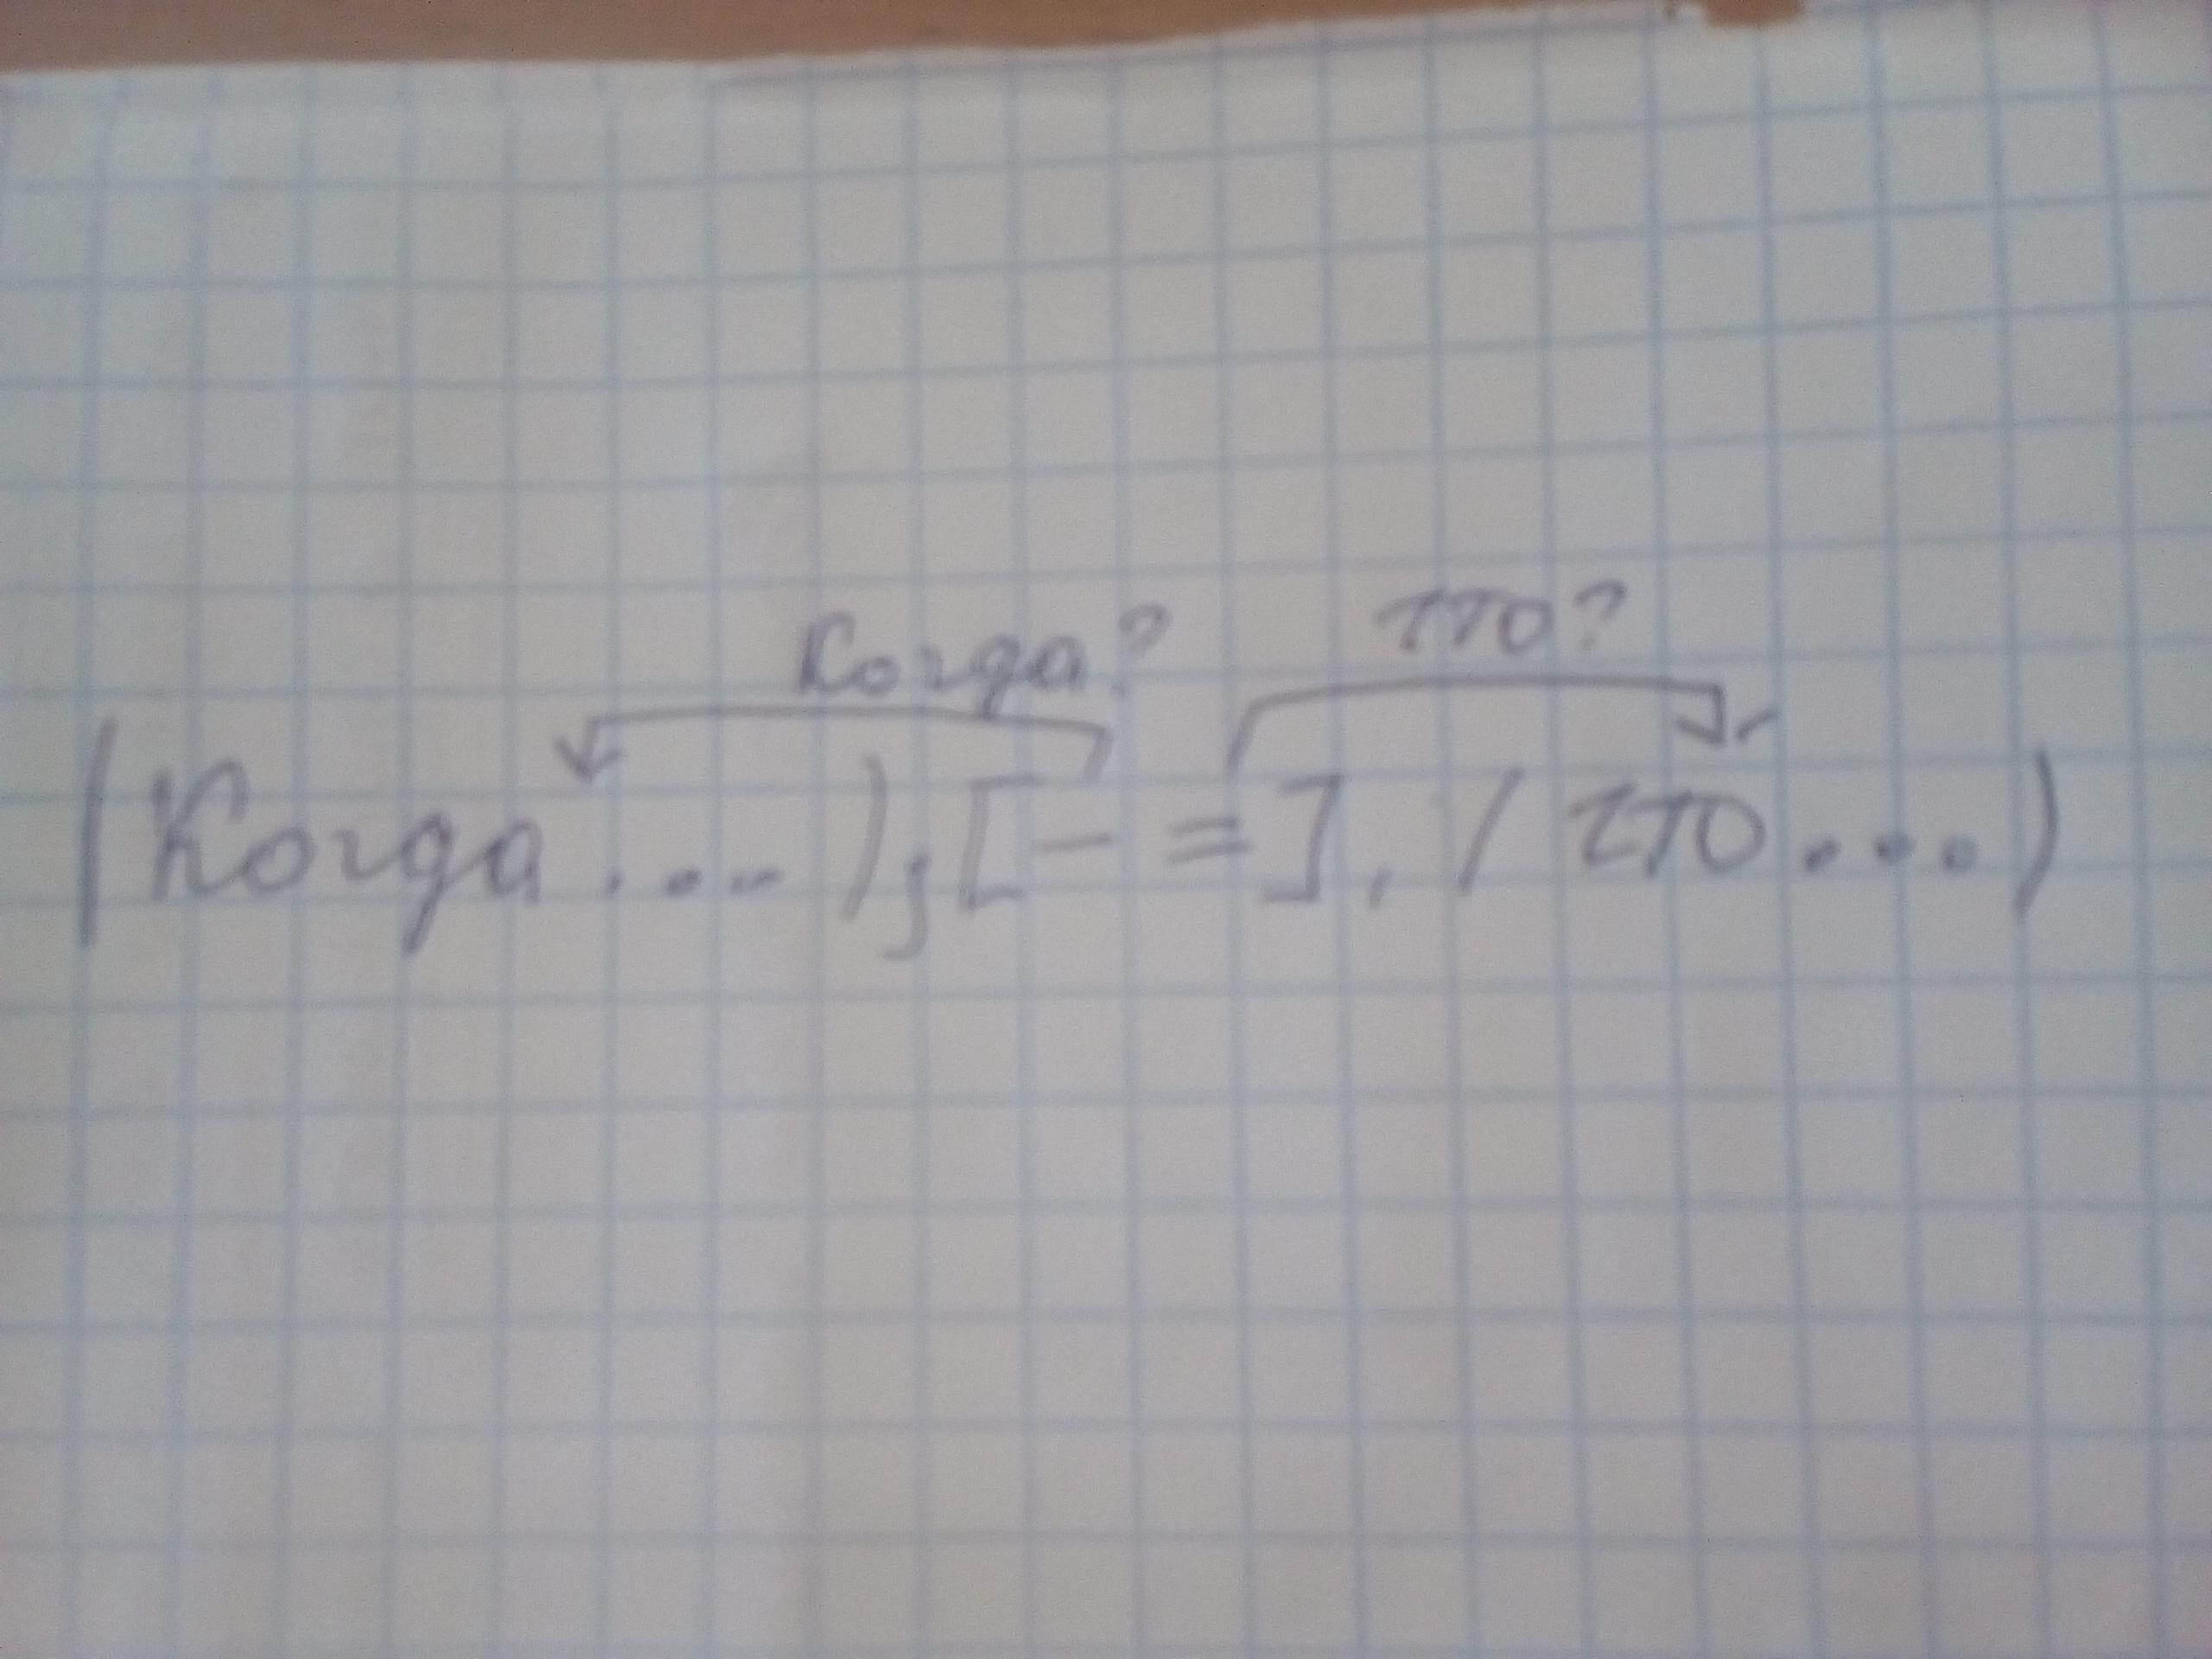 Когда? что?
(Когда ...), [– =], (что ...)